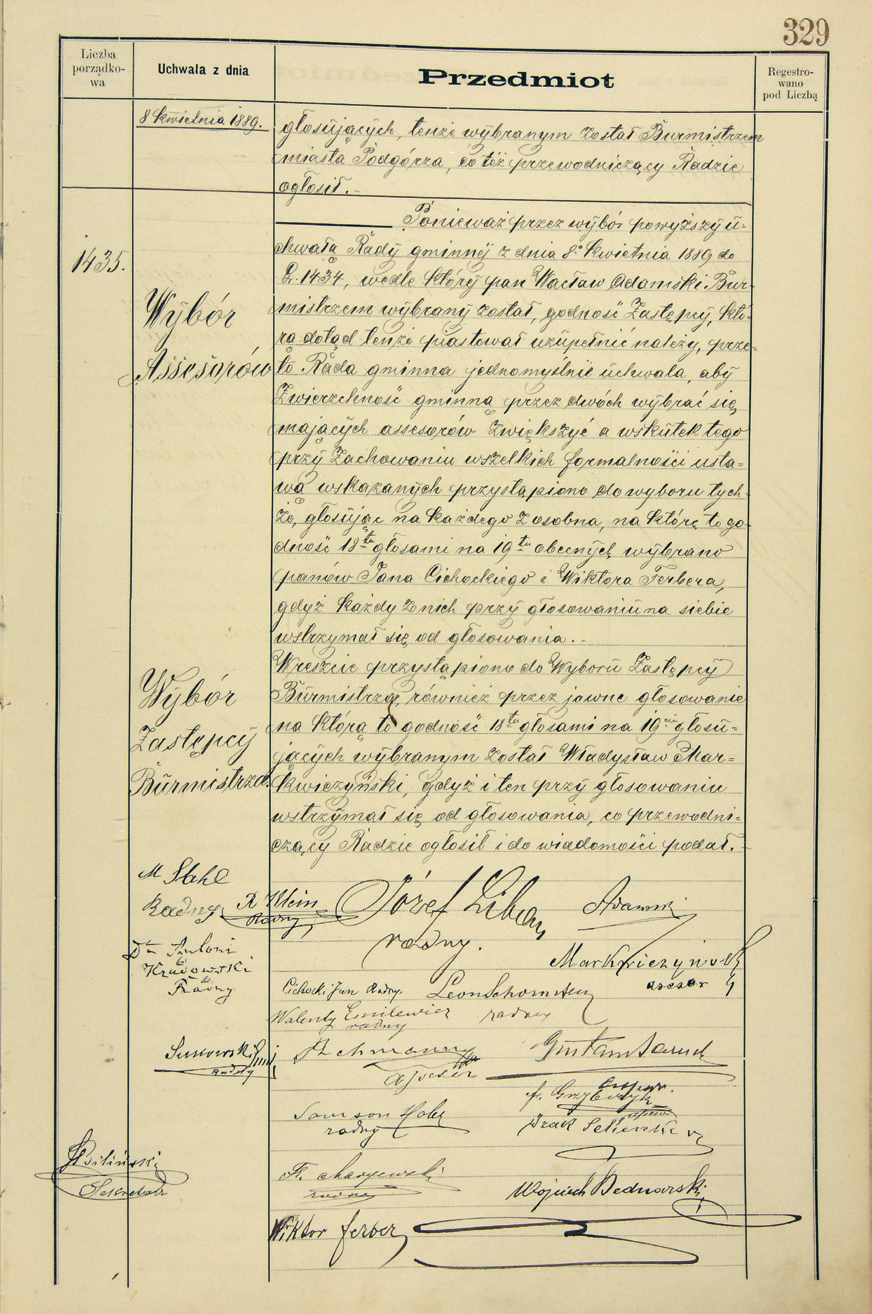 329
Liczba
porządko-
wa
Uchwała z dnia
Przedmiot
Regestro-
wano
pod Liczbą
8 kwietnia 1889.
głosujących, tenże wybranym został Burmistrzem
miasta Podgórza, co też przewodniczący Radzie
ogłosił.-
1435.
Wybór
Assesorów
Ponieważ przez wybór powyższy u-
chwałą Rady gminny z dnia 8. kwietnia 1889 do
L. 1434, wedle który pan Wacław Adamski Bur-
mistrzem wybrany został, godność Zastępcy, któ-
rą dotąd tenże piastował uzupełnić należy, prze-
to Rada gminna jednomyślnie uchwala, aby
Zwierzchność gminną przez dwóch wybrać się
mających assesorów zwiększyć a wskutek tego
przy zachowaniu wszelkich formalności usta-
wą wskazanych przystąpiono do wyboru tych-
że, głosując na każdego z osobna, na którą to go-
dność 18tu głosami na 19tu obecnych wybrano
panów Jana Cichockiego i Wiktora Ferbera,
gdyż każdy z nich przy głosowaniu na siebie
wstrzymał się od głosowania.-
Wybór
Zastępcy
Burmistrza.
Wreszcie przystąpiono do Wyboru Zastępcy
Burmistrza, również przez jawne głosowanie
na którą to godność 18tu głosami na 19 głosu-
jących wybranym został Władysław Mar-
kwiczyński, gdyż i ten przy głosowaniu
wstrzymał się od głosowania, co przewodni-
czący Radzie ogłosił i do wiadomości podał.-
M Stahl
Radny
R Klein
Radny
Józef Liban
radny.
Adamski
Dr Antoni
Krudowski
Radny
Markwiczyński
asesor
Cichocki Jan Radny.
Leon Schornstein
radny
Walenty Emilewicz
radny
radny
Bachmann
Asesor
Gustaw Baruch
Asesor.
Samson Holz
radny
A. Grzybczyk
asesor
Izaak
F. Maryewski
radny
Wojciech Bednarski
Biliński
Sekretarz
Wiktor Ferber